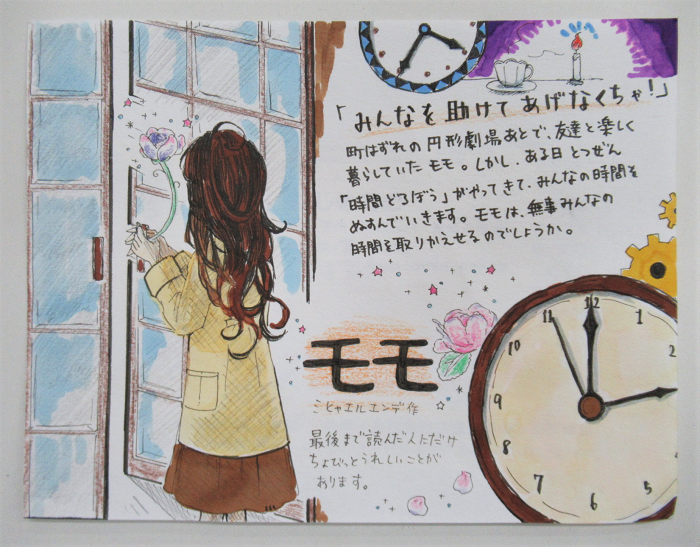 「みんなを助けてあげなくちゃ!」
町はずれの円形劇場あとで、友達と楽しく
暮らしていたモモ。しかし、ある日とつぜん
「時間どろぼう」がやってきて、みんなの時間を
ぬすんでいきます。モモは、無事みんなの
時間を取りかえせるのでしょうか。
モモ
ミヒャエルエンデ作
最後まで読んだ人にだけ
ちょびっとうれしいことが
あります。
11 12 1
10
9
8
7 6 5
4